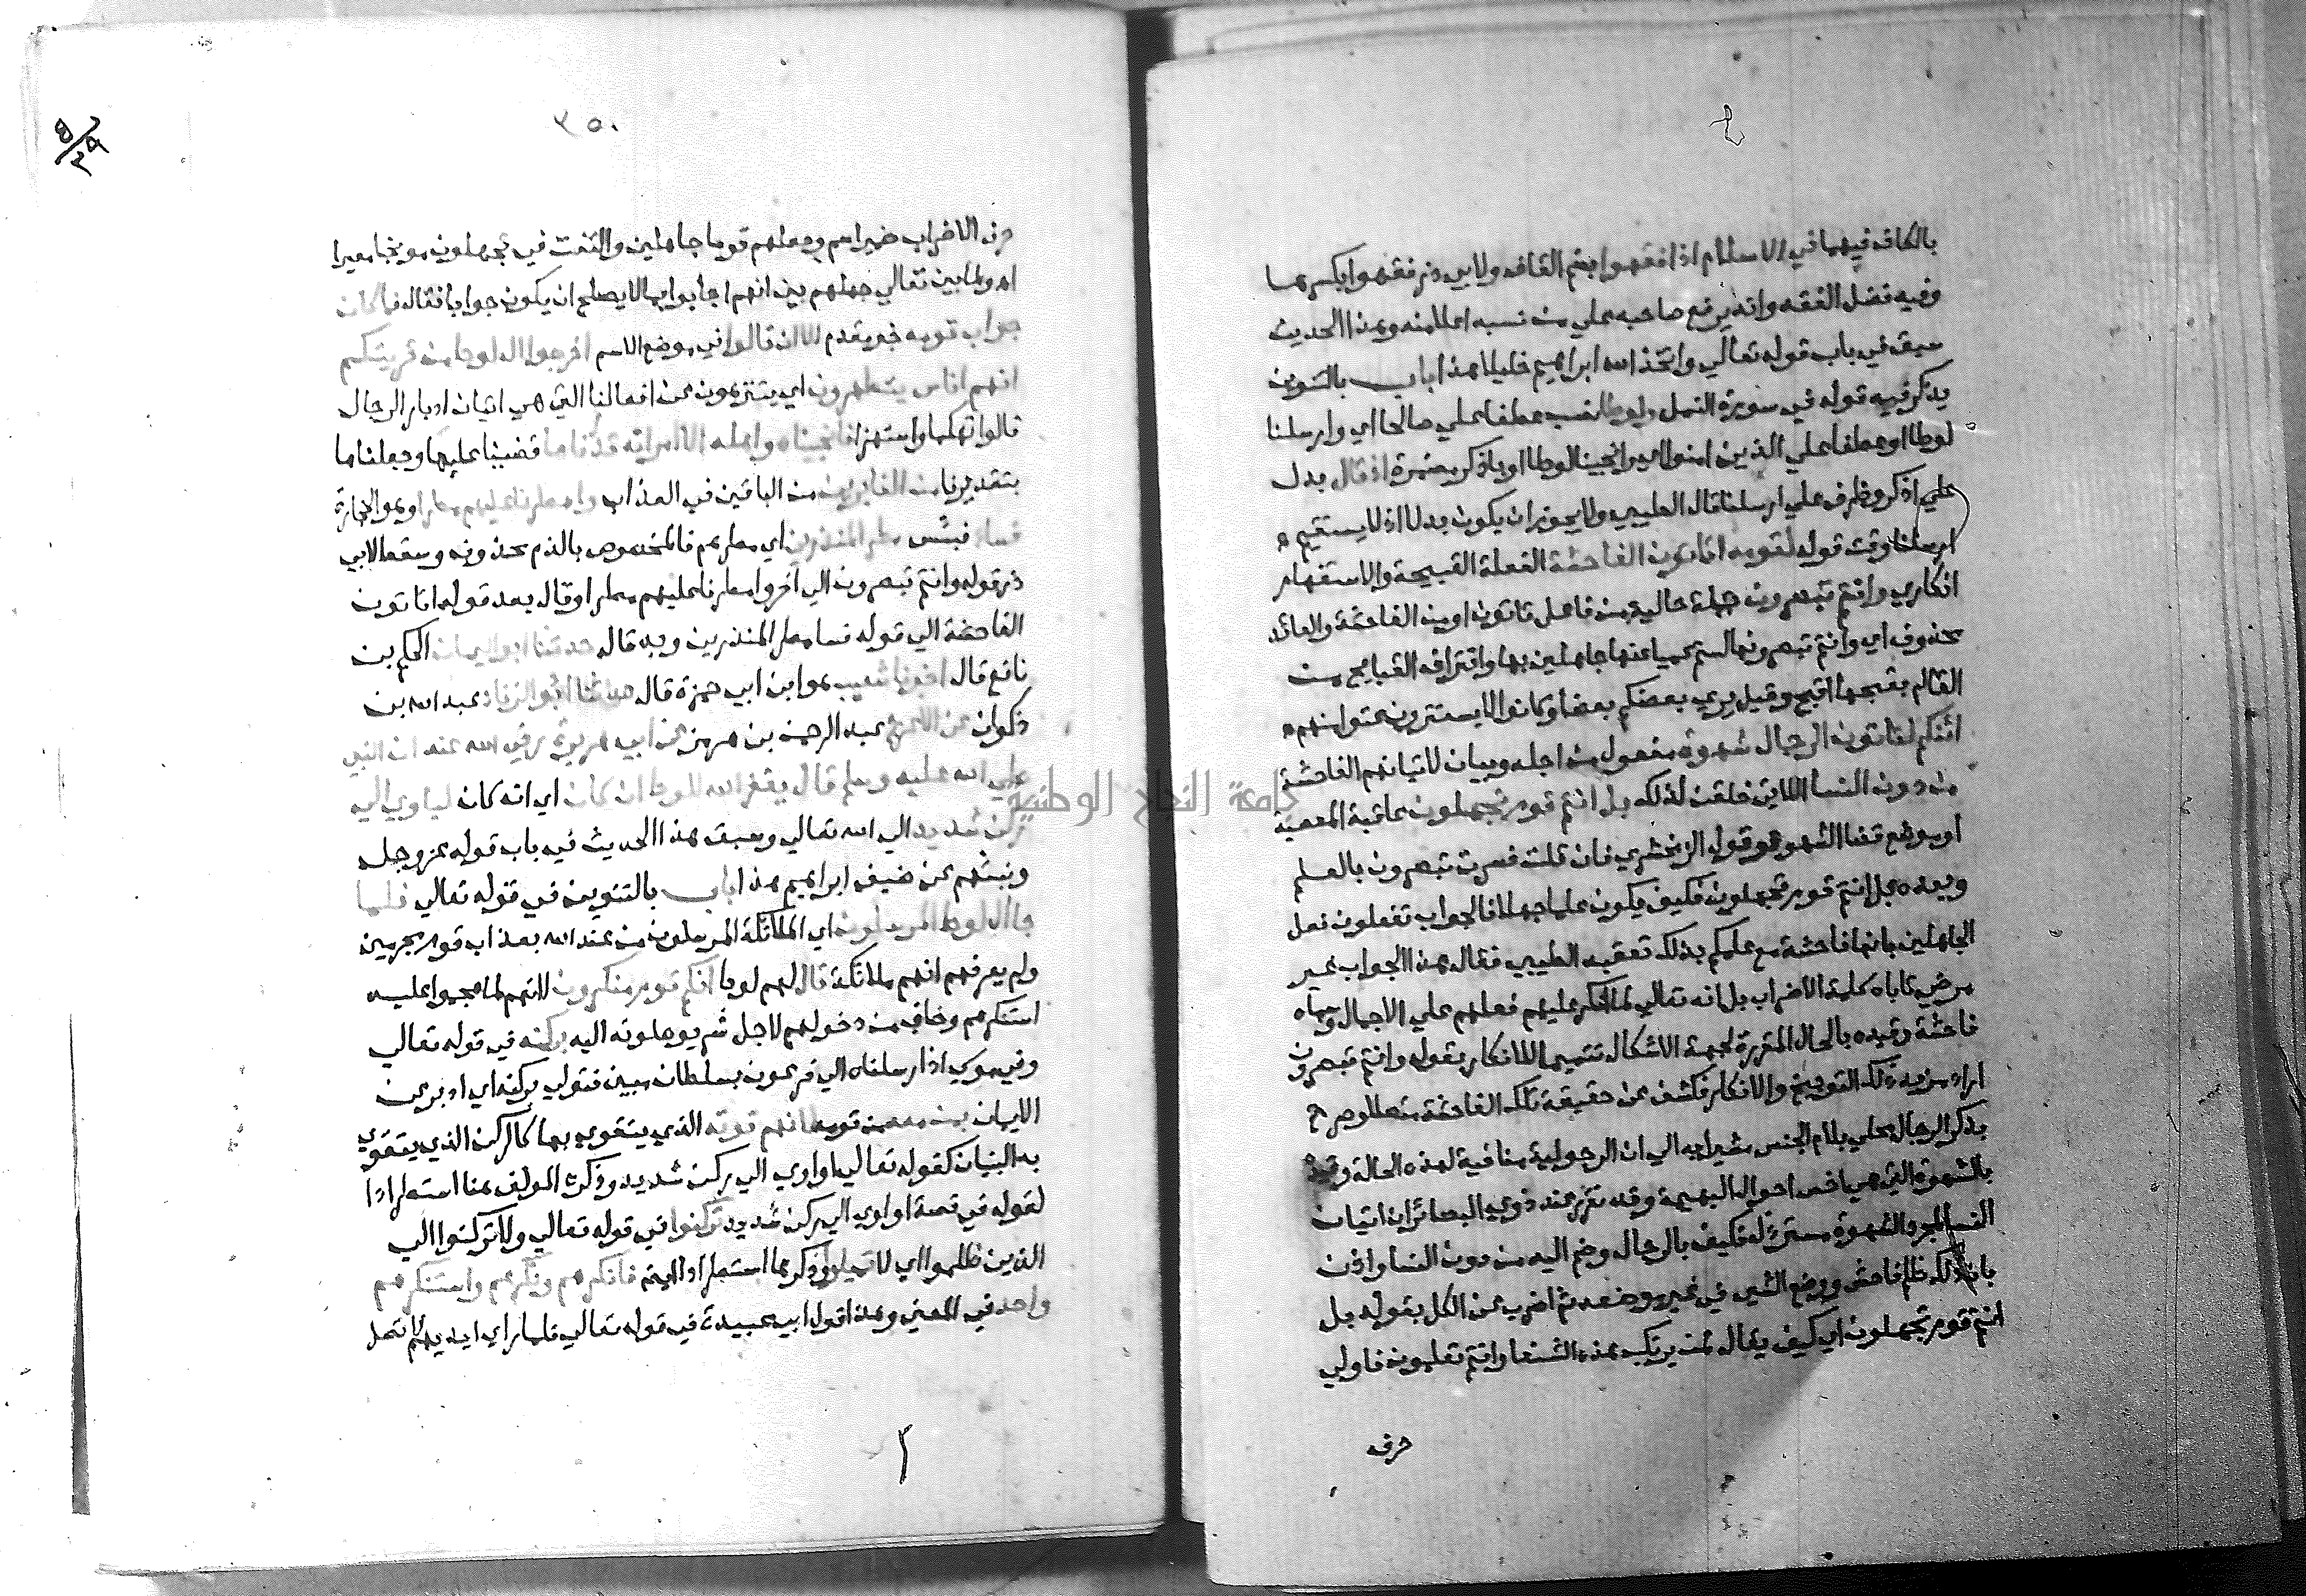 بالكاف فيهما في الاسلام اذا فقهوا بضم القاف ولابي ذر فقهوا بكسرها
وفيه فضل الفقه وانه يرفع صاحبه على من نسبه اعلا منه وهذا الحديث
سبق في باب قوله تعالي واتخذ الله ابراهيم خليلا هذا باب بالتنوين
يذكر فيه قوله في سورة النمل ولوطا نصب عطفا علي صالحا اي وارسلنا
لوطا او عطفا علي الذين امنوا اي وانجينا لوطا او باذكر مضمرة اذ قال بدل
علي اذكر وظرف علي ارسلنا قال الطيبي ولا يجوز ان يكون بدلا اذ لا يستقيم
ارسلنا وقت قوله لقومه اتاتون الفاحشة الفعلة القبيحة والاستفهام
انكاري وانتم تبصرون جملة حالية من فاعل تاتون او من الفاحشة والعائد
محذوف اي وانتم تبصرونها لستم عميا عنها جاهلين بها واقتراف القبايح من
العالم بقبحها اقبح وقيل يري بعضكم بعضا وكانوا لا يستترون عتوا منهم
ائنكم لتاتون الرجال شهوة مفعول من اجله وبيان لاتيانهم الفاحشة
من دون النسا اللاتي خلقن لذلك بل انتم قوم تجهلون عاقبة المعصية
او موضع قضا الشهوة وقول الزمخشري فان قلت فسرت تبصرون بالعلم
وبعده بل انتم قوم تجهلون فكيف يكون علما جهلا فالجواب تفعلون فعل
الجاهلين بانها فاحشة مع علمكم بذلك تعقبه الطيبي فقال هذا الجواب غير
مرضي تاباه كلمة الاضراب بل انه تعالي لما انكر عليهم فعلهم علي الاجمال وسماه
فاحشة وقيده بالحال المقررة لجهة الاشكال تتميما للانكار بقوله وانتم تبصرون
اراد مزيد ذلك التوبيخ والانكار فكشف عن حقيقة تلك الفاحشة
بذكر الرجال محلي بلام الجنس مشيرا به الي ان الرجولية منافية لهذه الحالة وقيده
بالشهوة التي هي اخس احوال البهيمة وقد تقرر عند ذوي البصائر ان اتيان
النسا لمجرد الشهوة مسترذل فكيف بالرجال وضم اليه من دون النسا واذن
بان ذلك ظلم فاحش ووضع الشي في غير موضعه ثم اضرب عن الكل بقوله بل
انتم قوم تجهلون اي كيف يقال لمن يرتكب هذه الشنعا وانتم تعلمون فاولي
حرف
٣٥٠
حرف الاضراب ضمير اسم وجعلهم قوما جاهلين والتفت في تجهلون موبخا معيرا
اه ولما بين تعالي جهلهم بين انهم اجابوا بما لا يصلح ان يكون جوابا فقال فما كان
جواب قومه خبر يقدم الا ان قالوا في موضع الاسم اخرجوا ال لوط من قريتكم
انهم اناس يتطهرون اي يتنزهون عن افعالنا التي هي اتيان ادبار الرجال
قالوا تهكما واستهزا فانجيناه واهله الا امراته قدرناها قضينا عليها وجعلناها
بتقديرنا من الغابرين من الباقين في العذاب وامطرنا عليهم مطرا وهو الحجارة
فساء فبئس مطر المنذرين اي مطرهم فالمخصوص بالذم محذوف وسقط لابي
ذر قوله وانتم تبصرون الي اخر وامطرنا عليهم مطرا وقال بعد قوله اتاتون
الفاحشة الي قوله فسا مطر المنذرين وبه قال حدثنا ابو اليمان الحكم بن
نافع قال اخبرنا شعيب هو ابن ابي حمزة قال حدثنا ابو الزناد عبد الله بن
ذكوان عن الاعرج عبد الرحمن بن هرمز عن ابي هريرة رضي الله عنه ان النبي
صلي الله عليه وسلم قال يغفر الله للوط ان كان اي انه كان لياوي الي
ركن شديد الي الله تعالي وسبق هذا الحديث في باب قوله عز وجل
ونبئهم عن ضيف ابراهيم هذا باب بالتنوين في قوله تعالي فلما
جا ال لوط المرسلون اي الملائكة المرسلون من عند الله بعذاب قوم مجرمين
ولم يعرفهم انهم ملائكة قال لهم لوط انكم قوم منكرون لانهم لما هجموا عليه
استنكرهم وخاف من دخولهم لاجل شر يوصلونه اليه بركنه في قوله تعالي
وفي موسي اذ ارسلناه الي فرعون بسلطان مبين فتولي بركنه اي ادبر عن
الايمان بمن معه من قومه لانهم قوته الذي يتقوي بها كالركن الذي يتقوي
به البنيان كقوله تعالي او اوي الي ركن شديد وذكره المولف هنا استطرادا
لقوله في قصة او اوي الي ركن شديد تركنوا في قوله تعالي ولا تركنوا الي
الذين ظلموا اي لا تميلوا وذكرها استطرادا ايضا فانكرهم ونكرهم واستنكرهم
واحد في المعني وهذا قول ابي عبيدة في قوله تعالي فلما راي ايديهم لا تصل
جامعة النجاح الوطنية